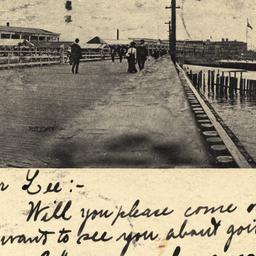 r Lee:-
Will you please come o
want to see you about goi